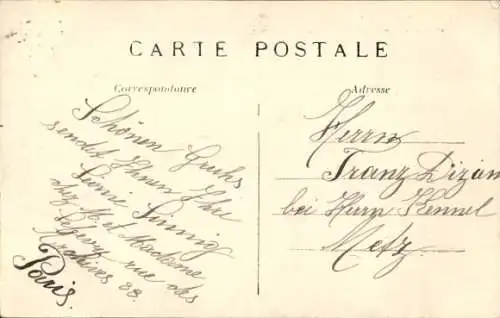 CARTE POSTALE
Correspondance
Schönen Gruhs
sendet Ihnen Ihre
chez Met Madame
rue des
Archives 88.
Paris.
Adresse
Herrn
Franz Dizan
bei Herrn Kennel
Metz.